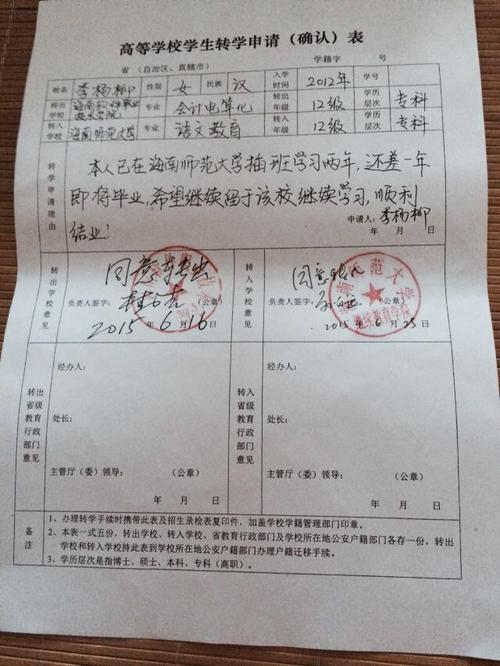 高等学校学生转学申请（确认）表
省（自治区、直辖市） 学籍字 号
姓名 李杨柳 性别 女 民族 汉 入学时间 2012年 学号
转出学校 海南软件职业技术学院 专业 会计电算化 转出年级 12级 学历层次 专科
转入学校 海南师范大学 专业 语文教育 转入年级 12级 学历层次 专科
转学申请理由
本人已在海南师范大学插班学习两年,还差一年
即将毕业,希望继续留于该校继续学习,顺利
结业!
申请人：李杨柳
年 月 日
转出学校意见 同意转出
负责人签字： （公章）
2015年6月16日
转入学校意见 同意转入
负责人签字： （公章）
2015年6月25日
海南师范大学
继续教育学院
转出省级教育行政部门意见
经办人：
处长：
主管厅（委）领导： （公章）
年 月 日
转入省级教育行政部门意见
经办人：
处长：
主管厅（委）领导： （公章）
年 月 日
备注
1、办理转学手续时携带此表及招生录检表复印件，加盖学校学籍管理部门印章。
2、本表一式五份，转出学校、转入学校、省教育行政部门及学校所在地公安户籍部门各存一份，转出
学校和转入学校持此表到学校所在地公安户籍部门办理户籍迁移手续。
3、学历层次是指博士、硕士、本科、专科（高职）。